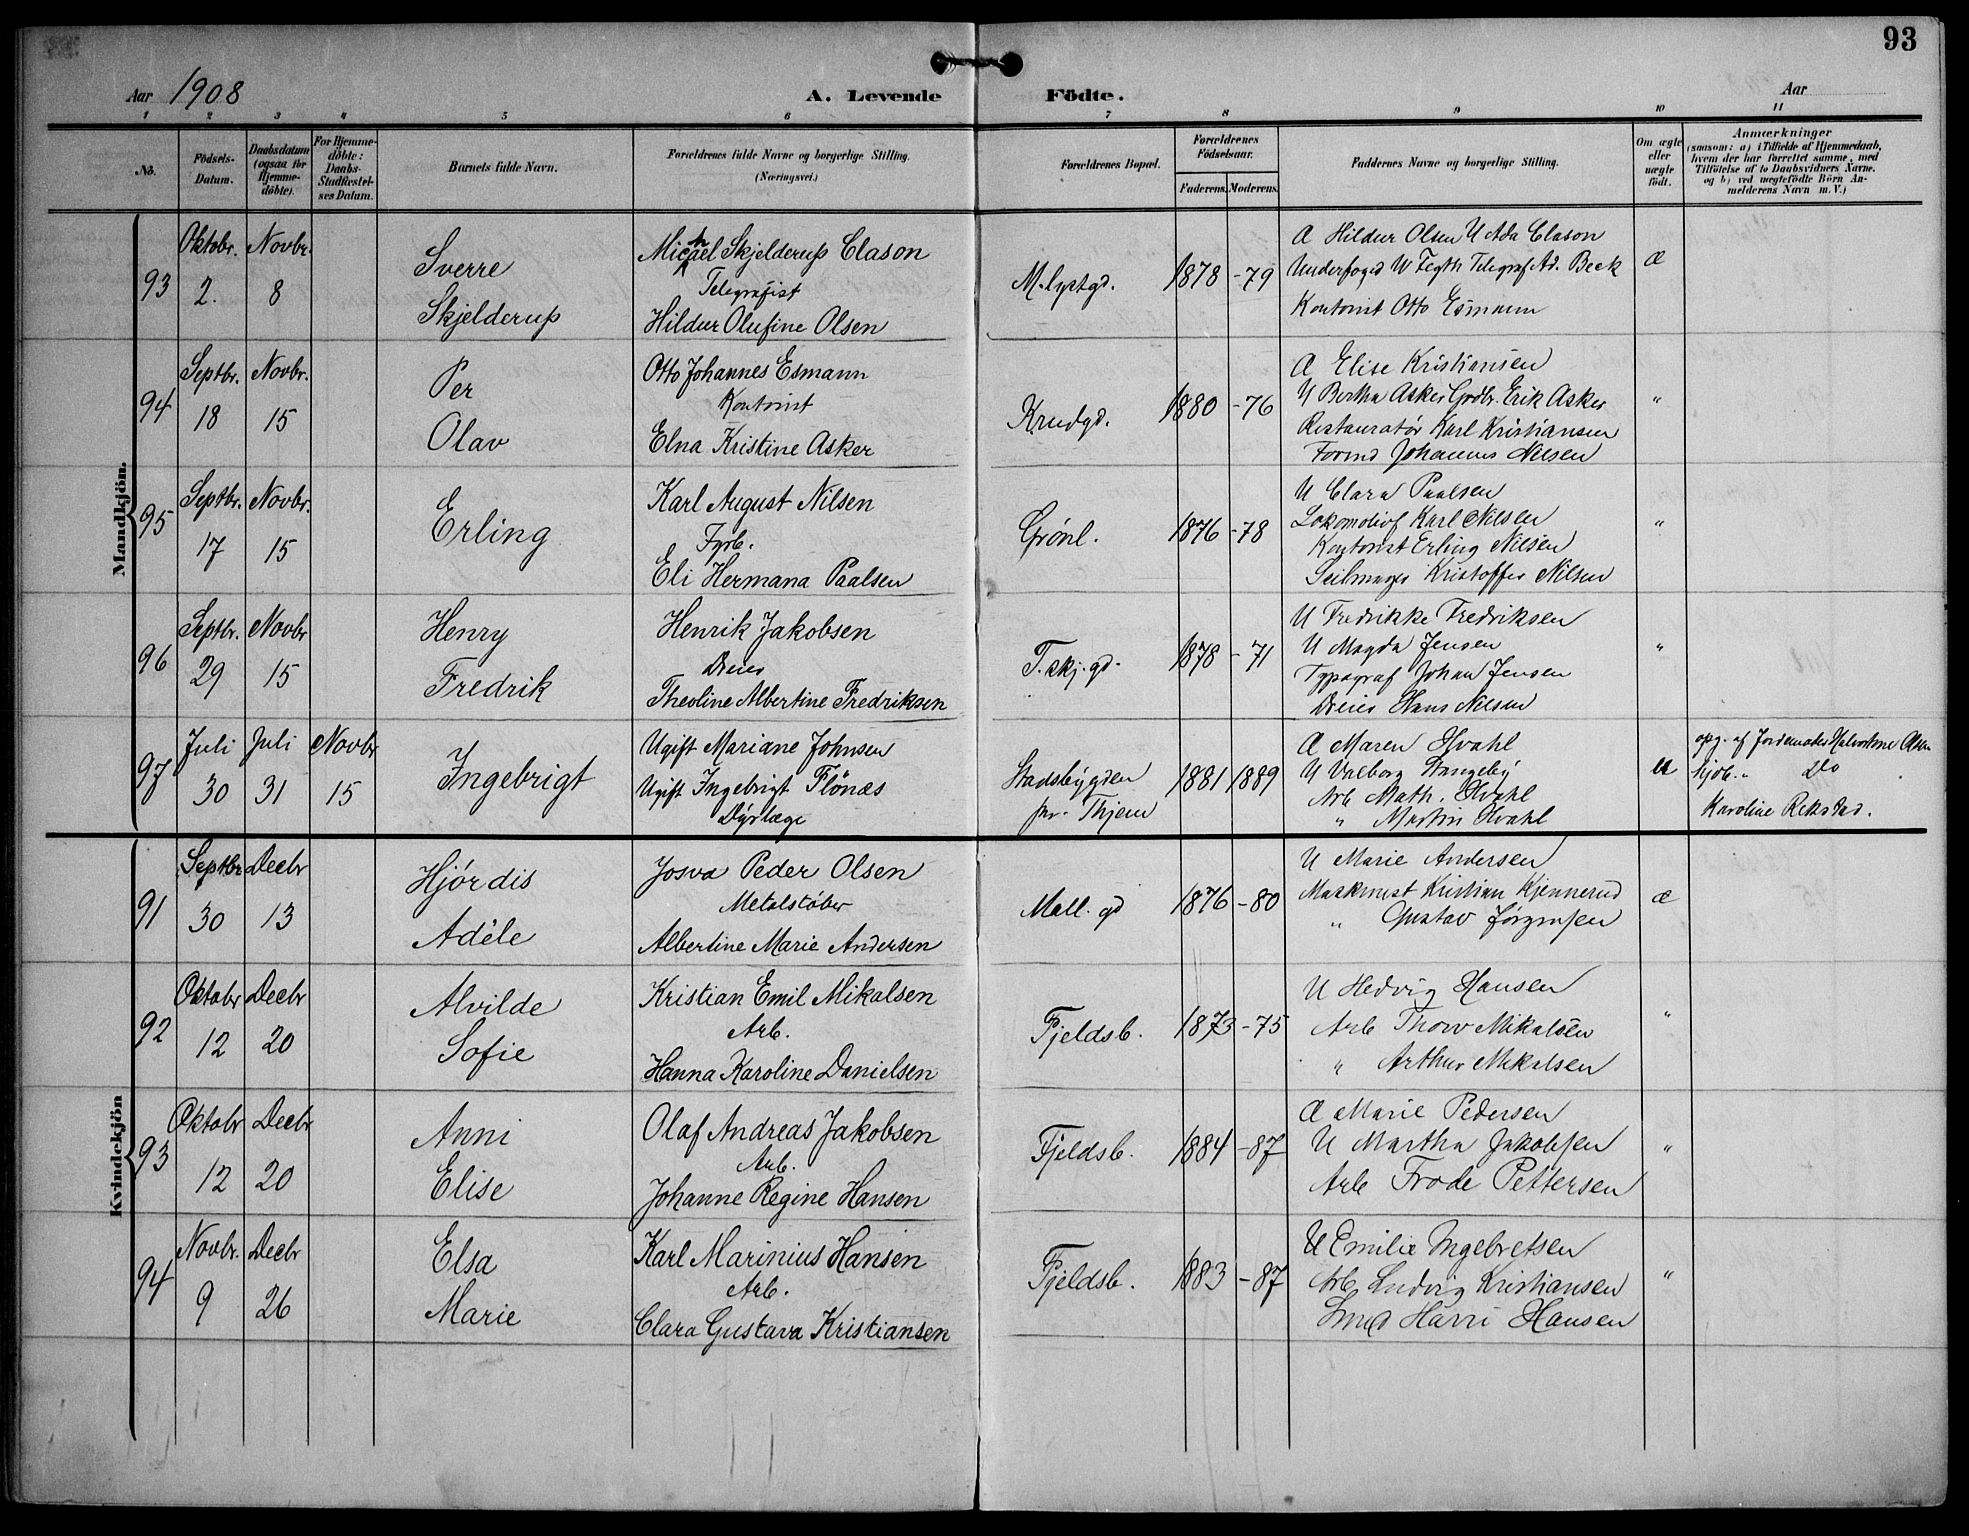 93
Aar 1908 A. Levende Födte. Aar
1 2 3 4 5 6 7 8 9 10 11
No.
Födsels-Datum.
Daabsdatum (ogsaa for Hjemme-döbte).
For Hjemme-döbte: Daabs-Stadfæstel-ses Datum.
Barnets fulde Navn.
Forældrenes fulde Navne og borgerlige Stilling. (Næringsvei.)
Forældrenes Bopæl.
Forældrenes Födselsaar.
Faderens. Moderens.
Faddernes Navne og borgerlige Stilling.
Om ægte eller uægte födt.
Anmærkninger
(saasom: a) i Tilfælde af Hjemmedaab, hvem der har forrettet samme, med Tilföielse af to Daabsvidners Navne. og b) ved uægtefödte Börn Anmelderens Navn m. V.)
Mandkjön.
93
Oktobr. 2.
Novbr. 8
Sverre
Skjelderup
Michael Skjelderup Clason
Telegrafist
Hildur Olufine Olsen
M.lystgd.
1878 -79
A Hildur Olsen U Ada Clason
Underfoged W Fegth Telegraf Ad. Beck
Kontorist Otto Esmann
Æ
94
Septbr. 18
Novbr. 15
Per
Olav
Otto Johannes Esmann
Kontorist
Elna Kristine Asker
Krudgd.
1880 -76
A Elise Kristiansen
U Bertha Asker Grdbr. Erik Asker
Restauratør Karl Kristiansen
Formd Johannes Nilsen
"
95
Septbr. 17
Novbr. 15
Erling
Karl August Nilsen
Fyrb.
Eli Hermana Paalsen
Grönl.
1876 -78
U Clara Paalsen
Lokomotivf Karl Nilsen
Kontorist Erling Nilsen
Seilmager Kristoffer Nilsen
"
96
Septbr. 29
Novbr 15
Henry
Fredrik
Henrik Jakobsen
Dreier
Theoline Albertine Fredriksen
T.skj.gd.
1878 -71
U Fredrikke Fredriksen
U Magda Jensen
Typograf Johan Jensen
Dreier Hans Nilsen
"
97
Juli 30
Juli 31
Novbr 15
Ingebrigt
Ugift Mariane Johnsen
Ugift Ingebrigt Flönæs
Dyrlæge
Stadsbygden
pr. Thjem
1881 1889
A Maren Hvahl
U Valborg Stangeby
Arb Math. Hvahl
" Martin Hvahl
U
opg. af Jordemoder Halvordine Olsen
hjdb. " Do
Karoline Rekstad.
Kvindekjön
91
Septbr 30
Decbr 13
Hjördis
Adèle
Josva Peder Olsen
Metalstöber
Albertine Marie Andersen
Mall. gd
1876 -80
U Marie Andersen
Maskinist Kristian Kjennerud
" Gustav Jörgensen
Æ
92
Oktobr 12
Decbr 20
Alvilde
Sofie
Kristian Emil Mikalsen
Arb.
Hanna Karoline Danielsen
Fjeldsb.
1873 -75
U Hedvig Hansen
Arb Thorv Mikalsen
" Arthur Mikalsen
"
93
Oktobr 12
Decbr 20
Anni
Elise
Olaf Andreas Jakobsen
Arb.
Johanne Regine Hansen
Fjeldsb.
1884 -87
A Marie Pedersen
U Martha Jakobsen
Arb Frode Pettersen
"
94
Novbr. 9
Decbr 26
Elsa
Marie
Karl Marinius Hansen
Arb.
Clara Gustava Kristiansen
Fjeldsb.
1883 -87
U Emilie Ingebretsen
Arb Ludvig Kristiansen
Smed Harri Hansen
"